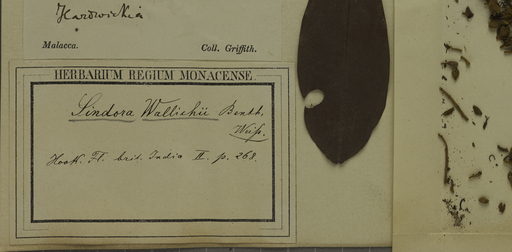 Hardwickia
Malacca. Coll. Griffith.
HERBARIUM REGIUM MONACENSE.
Sindora Wallichii Benth.
Hook. Fl. brit. India II. p. 268.